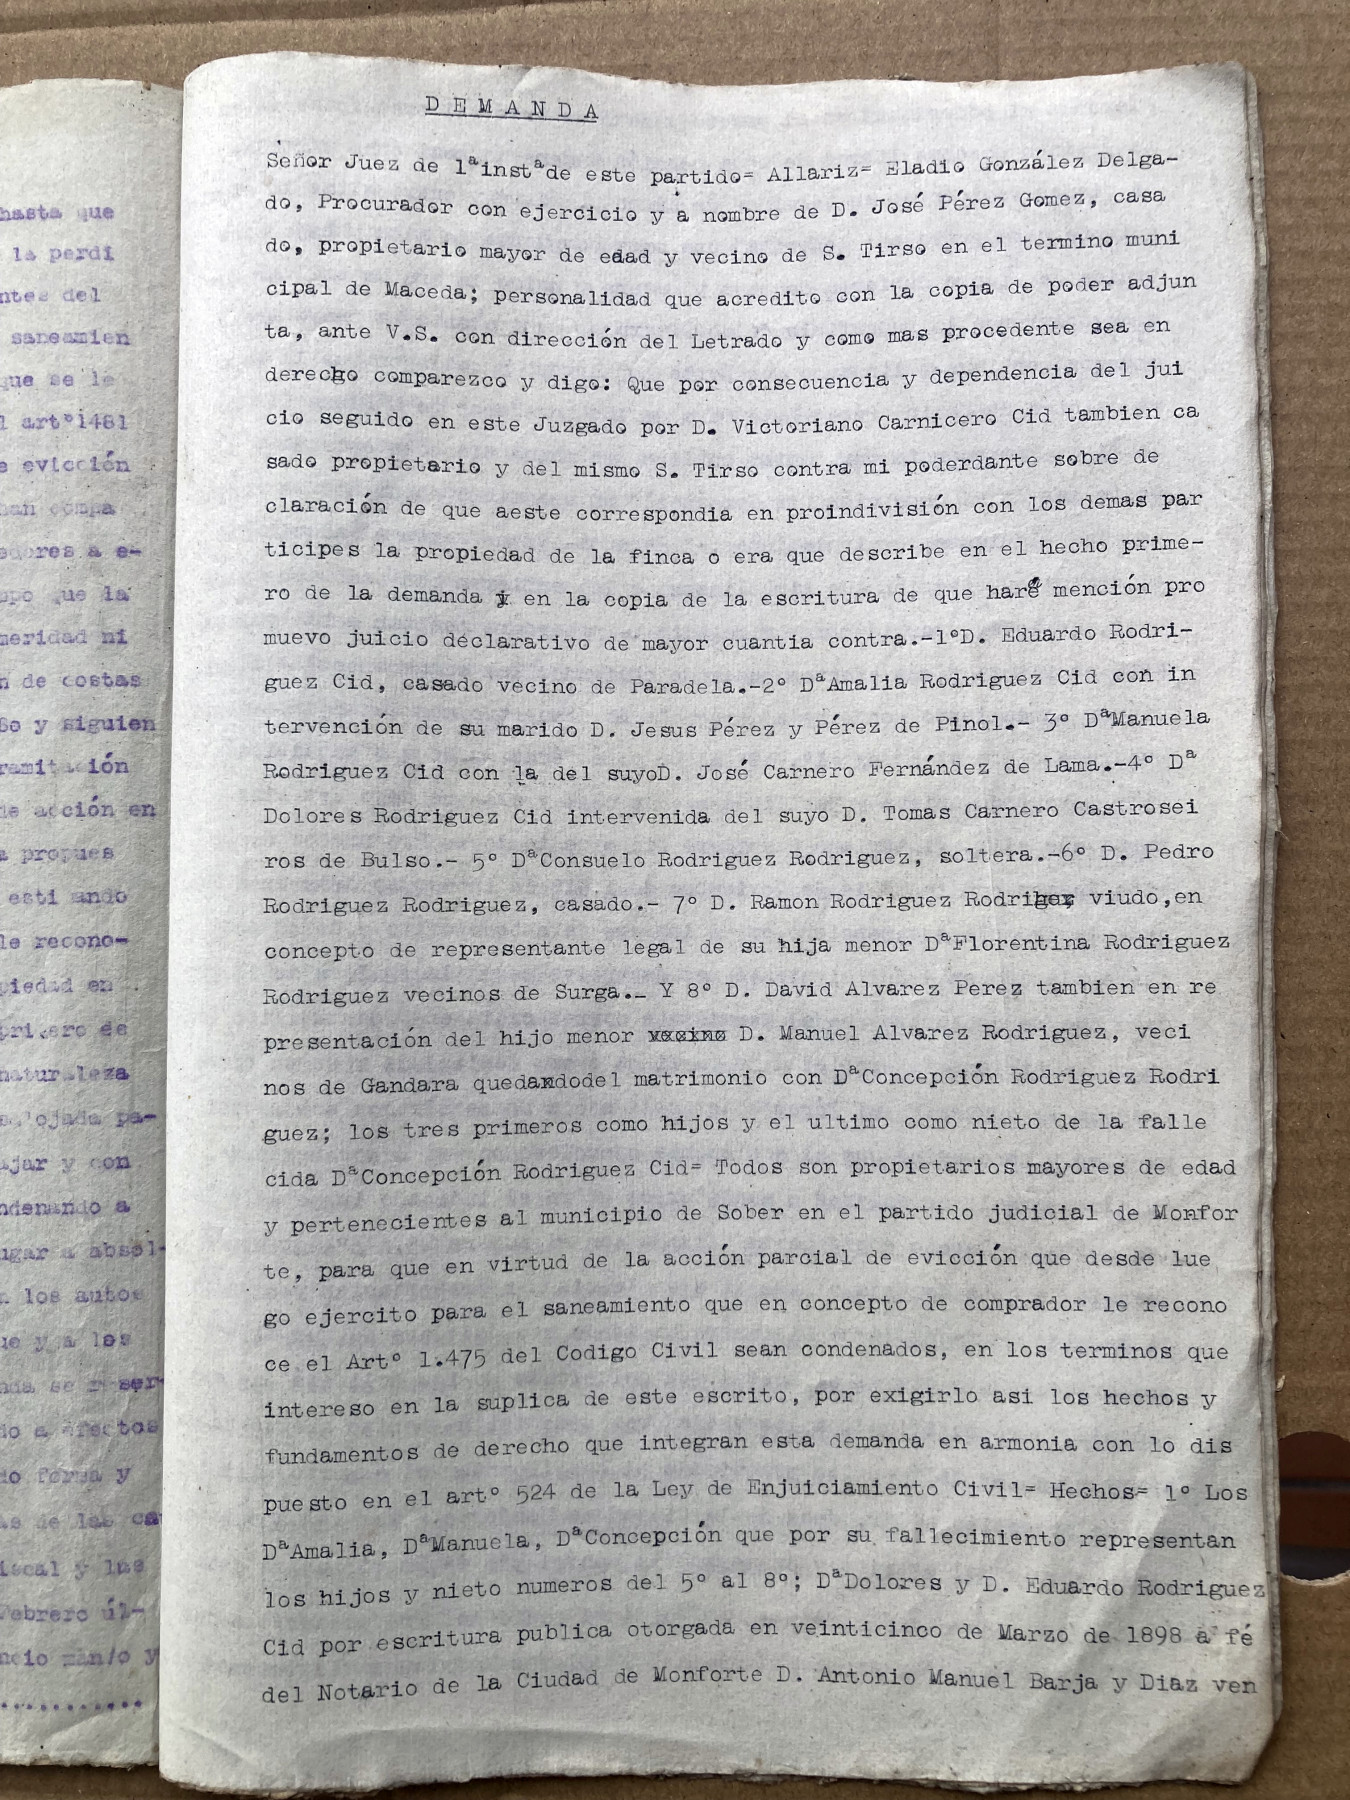 hasta que
la perdi
ntes del
saneamien
que se le
l artº1481
e evicción
han compa
edores a e-
po que la
meridad ni
n de costas
y siguien
ramitación
de acción en
a propues
esti ando
le recono-
piedad en
primero de
naturaleza
ojada pa-
ajar y con
ndenando a
ugar a absol-
los autos
ue y a los
nda se reser-
do a efectos
do forma y
as de las ca
iscal y las
Febrero úl-
ncio
............
DEMANDA
Señor Juez de 1ªinstªde este partido= Allariz= Eladio González Delga-
do, Procurador con ejercicio y a nombre de D. José Pérez Gomez, casa
do, propietario mayor de edad y vecino de S. Tirso en el termino muni
cipal de Maceda; personalidad que acredito con la copia de poder adjun
ta, ante V.S. con dirección del Letrado y como mas procedente sea en
derecho comparezco y digo: Que por consecuencia y dependencia del jui
cio seguido en este Juzgado por D. Victoriano Carnicero Cid tambien ca
sado propietario y del mismo S. Tirso contra mi poderdante sobre de
claración de que aeste correspondia en proindivisión con los demas par
ticipes la propiedad de la finca o era que describe en el hecho prime-
ro de la demanda y en la copia de la escritura de que haré mención pro
muevo juicio declarativo de mayor cuantia contra.-1ºD. Eduardo Rodri-
guez Cid, casado vecino de Paradela.-2º DªAmalia Rodriguez Cid con in
tervención de su marido D. Jesus Pérez y Pérez de Pinol.- 3º DªManuela
Rodriguez Cid con la del suyoD. José Carnero Fernández de Lama.-4º Dª
Dolores Rodriguez Cid intervenida del suyo D. Tomas Carnero Castrosei
ros de Bulso.- 5º DªConsuelo Rodriguez Rodriguez, soltera.-6º D. Pedro
Rodriguez Rodriguez, casado.- 7º D. Ramon Rodriguez viudo,en
concepto de representante legal de su hija menor DªFlorentina Rodriguez
Rodriguez vecinos de Surga.- Y 8º D. David Alvarez Perez tambien en re
presentación del hijo menor vecino D. Manuel Alvarez Rodriguez, veci
nos de Gandara quedandodel matrimonio con DªConcepción Rodriguez Rodri
guez; los tres primeros como hijos y el ultimo como nieto de la falle
cida DªConcepción Rodriguez Cid= Todos son propietarios mayores de edad
y pertenecientes al municipio de Sober en el partido judicial de Monfor
te, para que en virtud de la acción parcial de evicción que desde lue
go ejercito para el saneamiento que en concepto de comprador le recono
ce el Artº 1.475 del Codigo Civil sean condenados, en los terminos que
intereso en la suplica de este escrito, por exigirlo asi los hechos y
fundamentos de derecho que integran esta demanda en armonia con lo dis
puesto en el artº 524 de la Ley de Enjuiciamiento Civil= Hechos= 1º Los
DªAmalia, DªManuela, DªConcepción que por su fallecimiento representan
los hijos y nieto numeros del 5º al 8º; DªDolores y D. Eduardo Rodriguez
Cid por escritura publica otorgada en veinticinco de Marzo de 1898 a fé
del Notario de la Ciudad de Monforte D. Antonio Manuel Barja y Diaz ven